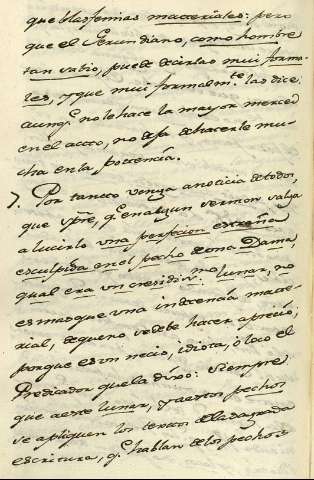 que blasfemias materiales: pero
que el Gerundiano, como hombre
tan sabio, puede decirlas mui forma-
les, y que mui formalm.te las dice.
aunq.e no le hace la mayor merced
en el acto, no deja de hacerle mu-
cha en la potencia.
7. Por tanto venga a noticia de todos,
que spre, q.e en algun sermon salga
a lucirlo una perfecion estraña
esculpida en el pecho de una Dama,
qual era un cresidis.mo lunar, no
es mas que una indecencia mate-
rial, de que no se debe hacer aprecio;
porque es un necio, idiota, ò loco el
Predicador que la dixo: Siempre
que a este lunar, y a estos pechos
se apliquen los textos de la Sagrada
escritura, q.e hablan de los pechos